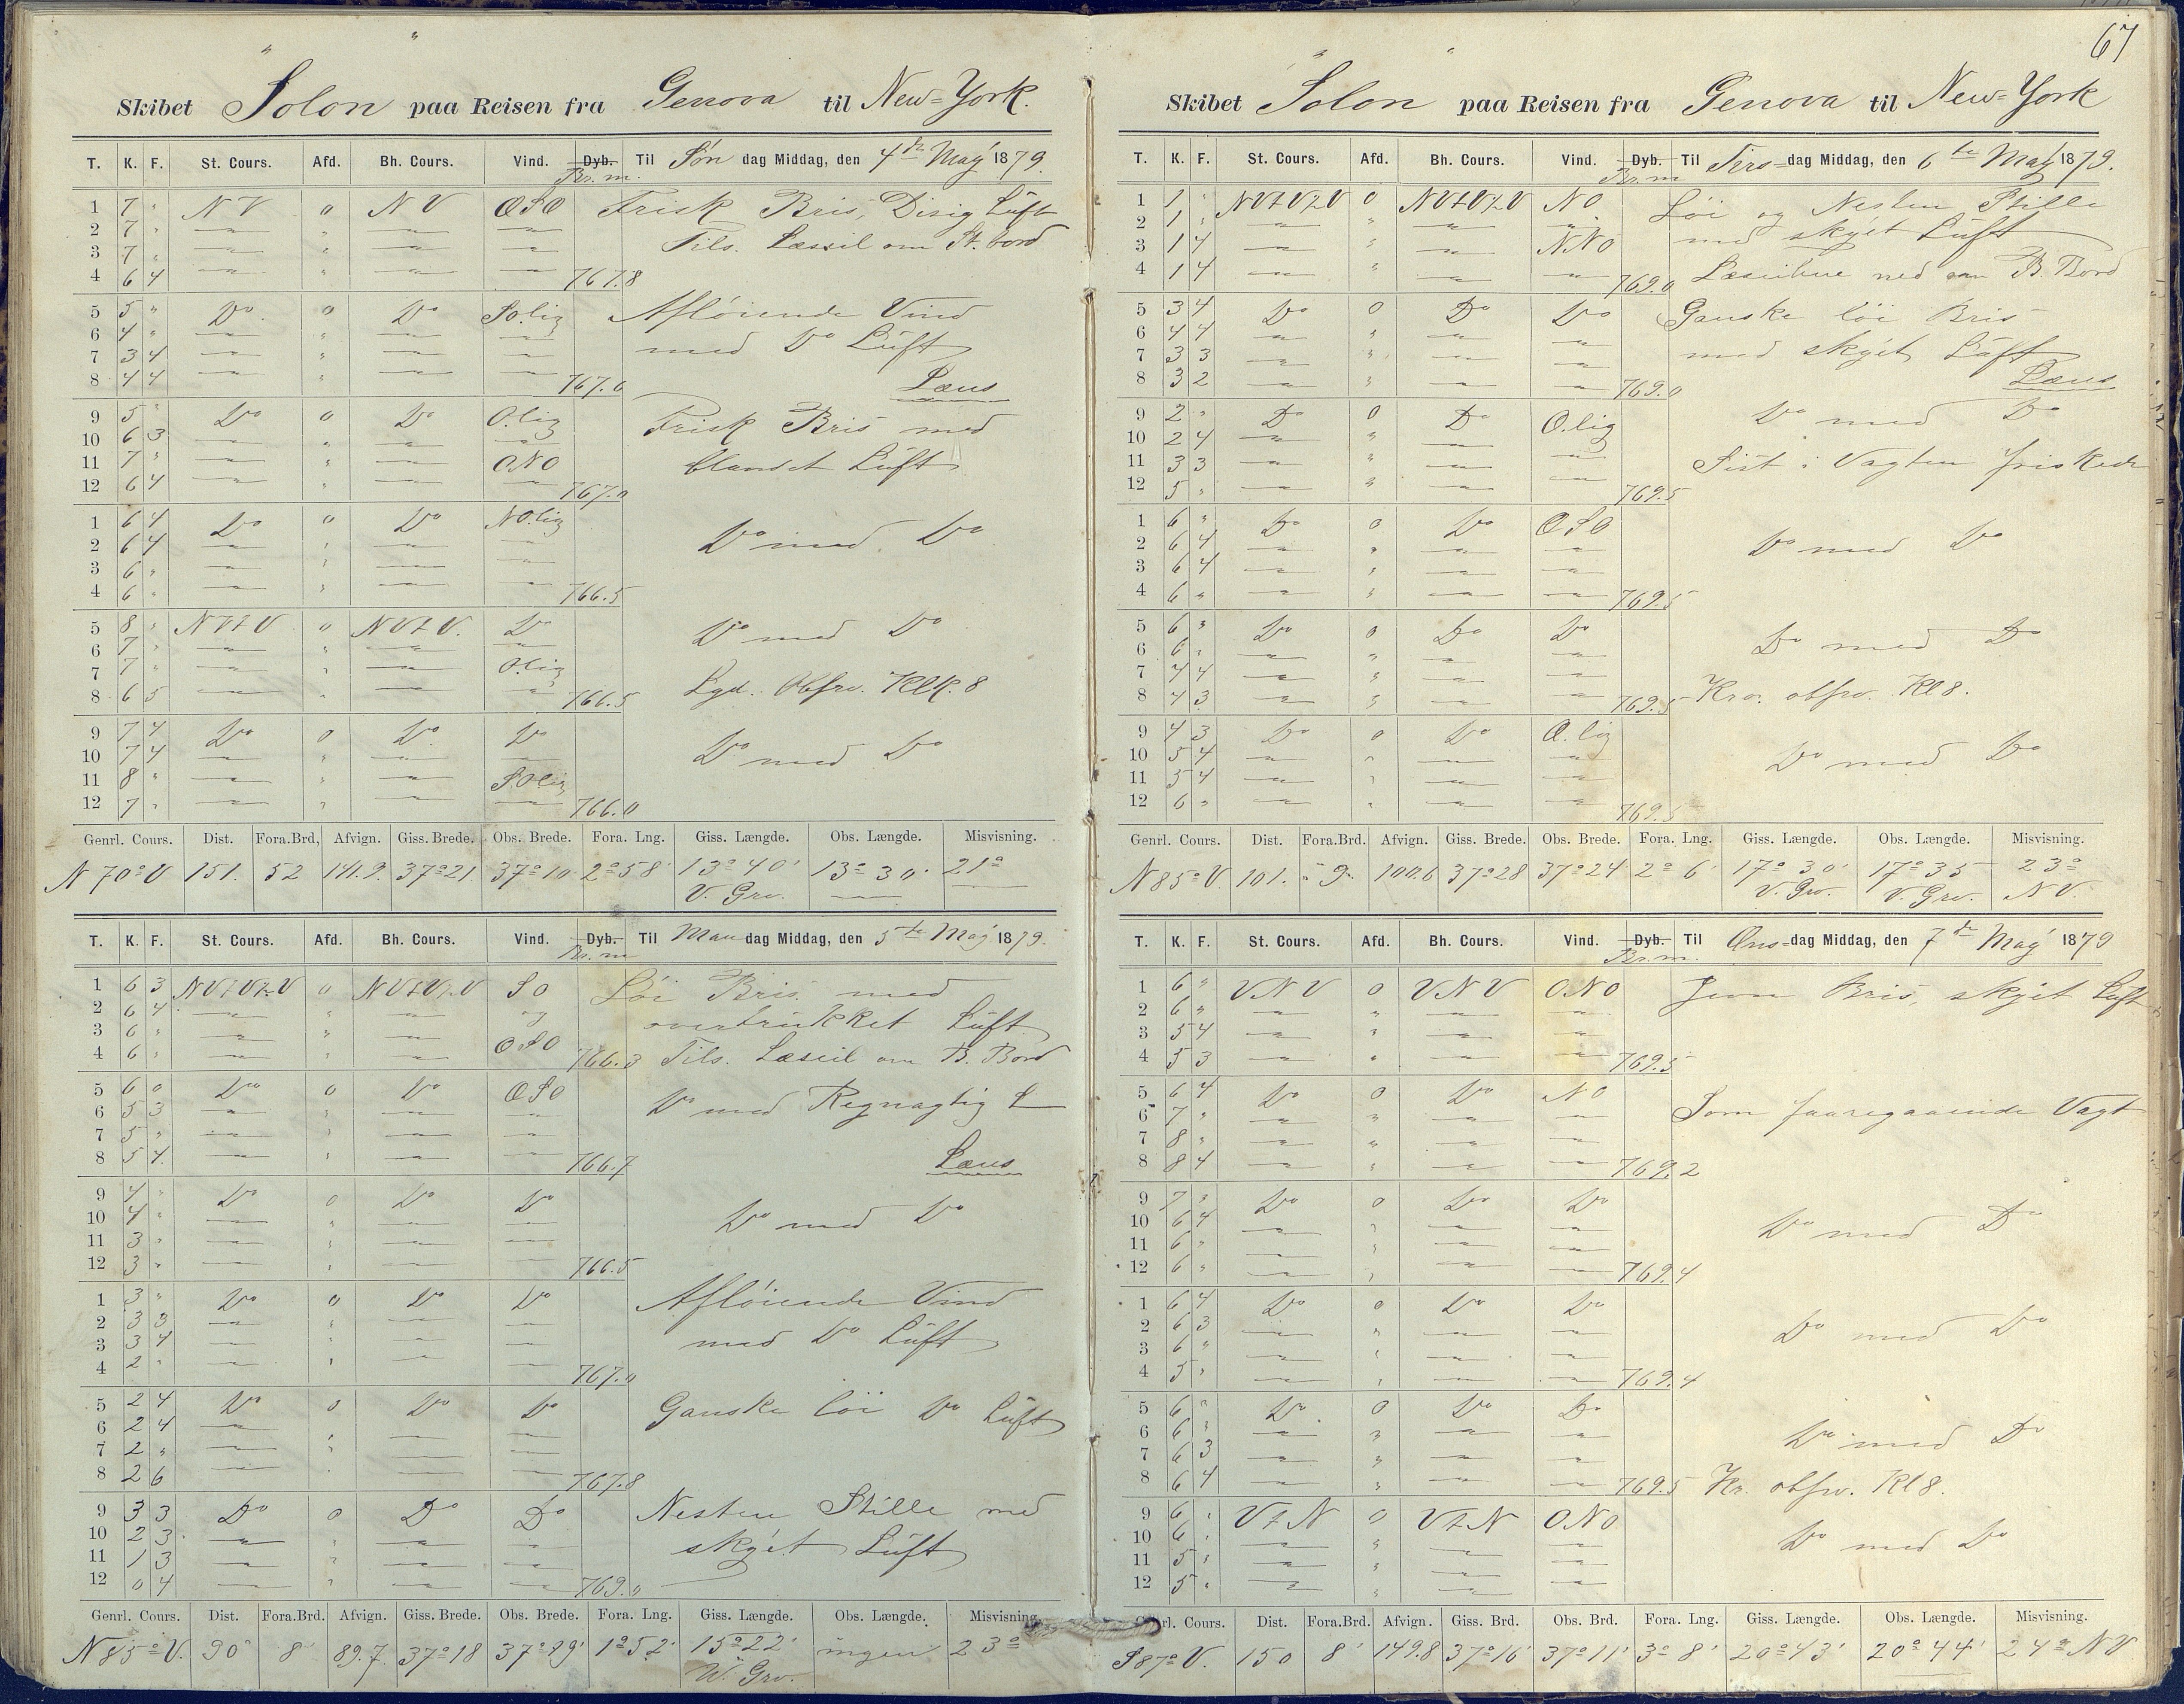 " "
Skibet Solon paa Reisen fra Genova til New=York.
T. K. F. St. Cours. Afd. Bh. Cours. Vind. Dyb. Til Søn dag Middag, den 4de May 1879.
Br. m.
1 7 " NV 0 NV OSO Frisk Bris, Disig Luft
2 7 " — " — —
3 7 " — " — — Tils. Læseil om St. bord
4 6 4 — " — — 767.8
5 5 " Do 0 Do SO.lig Afløiende Vind
6 4 " — " — —
7 3 4 — " — — med Do Luft
8 4 4 — " — — 767.0 Læns
9 5 " Do 0 Do O.lig Frisk Bris med
10 6 3 — " — —
11 7 " — " — ONO blandet Luft
12 6 4 — " — — 767.0
1 6 4 Do 0 Do NO.lig
2 6 4 — " — — Do med Do
3 6 " — " — —
4 6 " — " — — 766.5
5 8 " NVtV 0 NVtV. Do Do med Do
6 7 " — " — —
7 7 " — " — O.lig
8 6 5 — " — " 766.5 Lgd. Obsrv. Klk. 8
9 7 4 Do 0 Do Do
10 7 4 — " — — Do med Do
11 8 " — " — SO.lig
12 7 " — " — — 766.0
Genrl. Cours. Dist. Fora.Brd, Afvign. Giss. Brede. Obs. Brede. Fora. Lng. Giss. Længde. Obs. Længde. Misvisning.
N 70° V 151. 52 141.9. 37°21. 37°10 2°58' 13°40' 13°30' 21°
V. Grv. —
T. K. F. St. Cours. Afd. Bh. Cours. Vind. Dyb. Til Man dag Middag, den 5te May 1879.
Br. m
1 6 3 NVtV½V 0 NVtV½V SO Løi Bris med
2 6 4 — " — og overtrukket Luft
3 6 " — " — OSO
4 6 " — " — 766.3 Tils. Læseil om B. Bord
5 6 0 Do 0 Do OSO
6 5 3 — " — — Do med Regnagtig L
7 5 " — " — —
8 5 4. — " — — 766.7 Læns
9 4 " Do 0 Do Do
10 4 " — " — — Do med Do
11 3 " — " — —
12 3 " — " — — 766.5
1 3 " Do 0 Do Do Afløiende Vind
2 3 3 — " — —
3 3 4 — " — — med Do Luft
4 2 " — " — — 767.0
5 2 4 Do 0 Do Do Ganske løi Do Luft
6 2 4 — " — —
7 2 " — " — —
8 2 6 — " — — 767.8
9 3 3 Do 0 Do Do Nesten Stille med
10 2 3 — " — —
11 1 3 — " — — skyet Luft
12 0 4 — " — — 769.0
Genrl. Cours. Dist. Fora.Brd. Afvign. Giss. Brede. Obs. Brede. Fora. Lng. Giss. Længde. Obs. Længde. Misvisning.
N 85° V. 90 8' 89.7. 37°18 37°19' 1°52' 15°22' ingen 23°
W. Grv.
67
" "
Skibet Solon paa Reisen fra Genova til New=York
T. K. F. St. Cours. Afd. Bh. Cours. Vind. Dyb. Til Tirs= dag Middag, den 6te May 1879.
Br. m
1 1 " NVtV½V 0 NVtV½V NO Løi og Nesten Stille
2 1 " — " — " med skyet Luft
3 1 4 — " — NNO
4 1 4 — " — — 769.0 Læseilene ned om B. Bord
5 3 4 Do 0 Do Do Ganske løi Bris
6 4 4 — " — —
7 3 3 — " — — med skyet Luft
8 3 2 — " — — 769.0 Læns
9 2 " Do 0 Do O.lig Do med Do
10 2 4 — " — —
11 3 3 — " — — Sist i Vagten friskede
12 5 " — " — — 769.5
1 6 " Do 0 Do OSO
2 6 4 — " — — Do med Do
3 6 4 — " — —
4 6 " — " — — 769.5
5 6 " Do 0 Do Do Do med Do
6 6 " — " — —
7 4 4 — " — —
8 4 3 — " — — 769.5 Kro. obsrv. Kl 8.
9 4 3 Do 0 Do O.lig
10 5 4 — " — — Do med Do
11 5 4 — " — —
12 6 " — " — — 769.5
Genrl. Cours. Dist. Fora.Brd. Afvign. Giss. Brede. Obs. Brede. Fora. Lng. Giss. Længde. Obs. Længde. Misvisning.
N 85° V. 101. " 9. 100.6 37°28 37°24 2° 6' 17° 30' 17° 35 23°
V. Grv. V. Grv. NV.
T. K. F. St. Cours. Afd. Bh. Cours. Vind. Dyb. Til Ons= dag Middag, den 7de May 1879
Br. m.
1 6 " VNV 0 VNV ONO Jevn Bris, skyet Luft
2 6 " — " — —
3 5 4 — " — —
4 5 3 — " — — 769.5
5 6 4 Do 0 Do NO
6 7 " — " — — Som foaregaaende Vagt
7 8 " — " — —
8 8 4 — " — — 769.2
9 7 " Do 0 Do Do
10 6 4 — " — — Do med Do
11 6 " — " — —
12 6 " — " — — 769.4
1 6 4 Do 0 Do Do
2 6 3 — " — — Do med Do
3 6 " — " — —
4 5 " — " — — 769.4
5 6 " Do 0 Do Do
6 6 " — " — — Do med Do
7 6 3 — " — —
8 6 4 — " — — 769.5 Kr. obsrv. Kl 8.
9 6 " VtN 0 VtN ONO
10 6 " — " — — Do med Do
11 5 " — " — —
12 5 " — " — —
rl. Cours. Dist. Fora.Brd. Afvign. Giss. Brd. Obs. Brd. Fora. Lng. Giss. Længde. Obs. Længde. Misvisning.
S 87° V. 150 8' 149.8 37°16' 37°11' 3° 8' 20°43' 20° 44' 24° NV